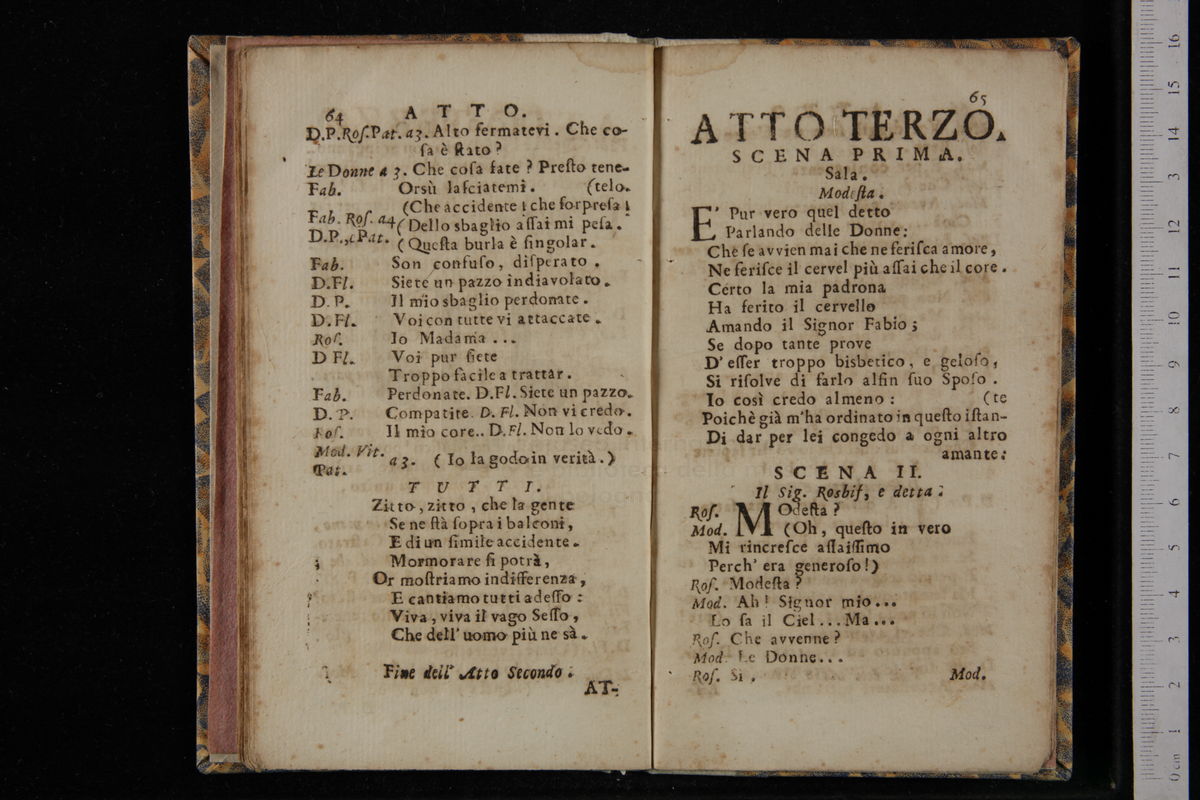 64 ATTO.
D.P.Roſ.Pat. a3. Alto fermatevi. Che co-
ſa è ſtato?
Le Donne a 3. Che coſa fate? Preſto tene-
Fab. Orsù laſciatemi. (telo.
(Che accidente! che ſorpreſa!
Fab. Roſ. a4 (Dello sbaglio aſſai mi peſa.
D.P., e Pat. (Queſta burla è ſingolar.
Fab. Son confuſo, diſperato.
D.Fl. Siete un pazzo indiavolato.
D. P. Il mio sbaglio perdonate.
D. Fl. Voi con tutte vi attaccate.
Roſ. Io Madama ...
D Fl. Voi pur ſiete
Troppo facile a trattar.
Fab. Perdonate. D.Fl. Siete un pazzo.
D. P. Compatite. D. Fl. Non vi credo.
Roſ. Il mio core.. D. Fl. Non lo vedo.
Mod. Vit.
Pat. a 3. ( Io la godo in verità.)
TUTTI.
Zitto, zitto, che la gente
Se ne ſtà ſopra i balconi,
E di un ſimile accidente.
Mormorare ſi potrà,
Or moſtriamo indifferenza,
E cantiamo tutti adeſſo:
Viva, viva il vago Seſſo,
Che dell' uomo più ne sà.
Fine dell' Atto Secondo.
AT-
65
ATTO TERZO.
SCENA PRIMA.
Sala.
Modeſta.
E' Pur vero quel detto
Parlando delle Donne:
Che ſe avvien mai che ne feriſca amore,
Ne feriſce il cervel più aſſai che il core.
Certo la mia padrona
Ha ferito il cervello
Amando il Signor Fabio;
Se dopo tante prove
D' eſſer troppo bisbetico, e geloſo,
Si riſolve di farlo alfin ſuo Spoſo.
Io così credo almeno: (te
Poichè già m'ha ordinato in queſto iſtan-
Di dar per lei congedo a ogni altro
amante.
SCENA II.
Il Sig. Rosbif, e detta.
Roſ. MOdeſta?
Mod. (Oh, queſto in vero
Mi rincreſce aſſaiſſimo
Perch' era generoſo!)
Roſ. Modeſta?
Mod. Ah! Signor mio...
Lo ſa il Ciel...Ma...
Roſ. Che avvenne?
Mod. Le Donne...
Roſ. Si. Mod.
0 cm 1 2 3 4 5 6 7 8 9 10 11 12 13 14 15 16